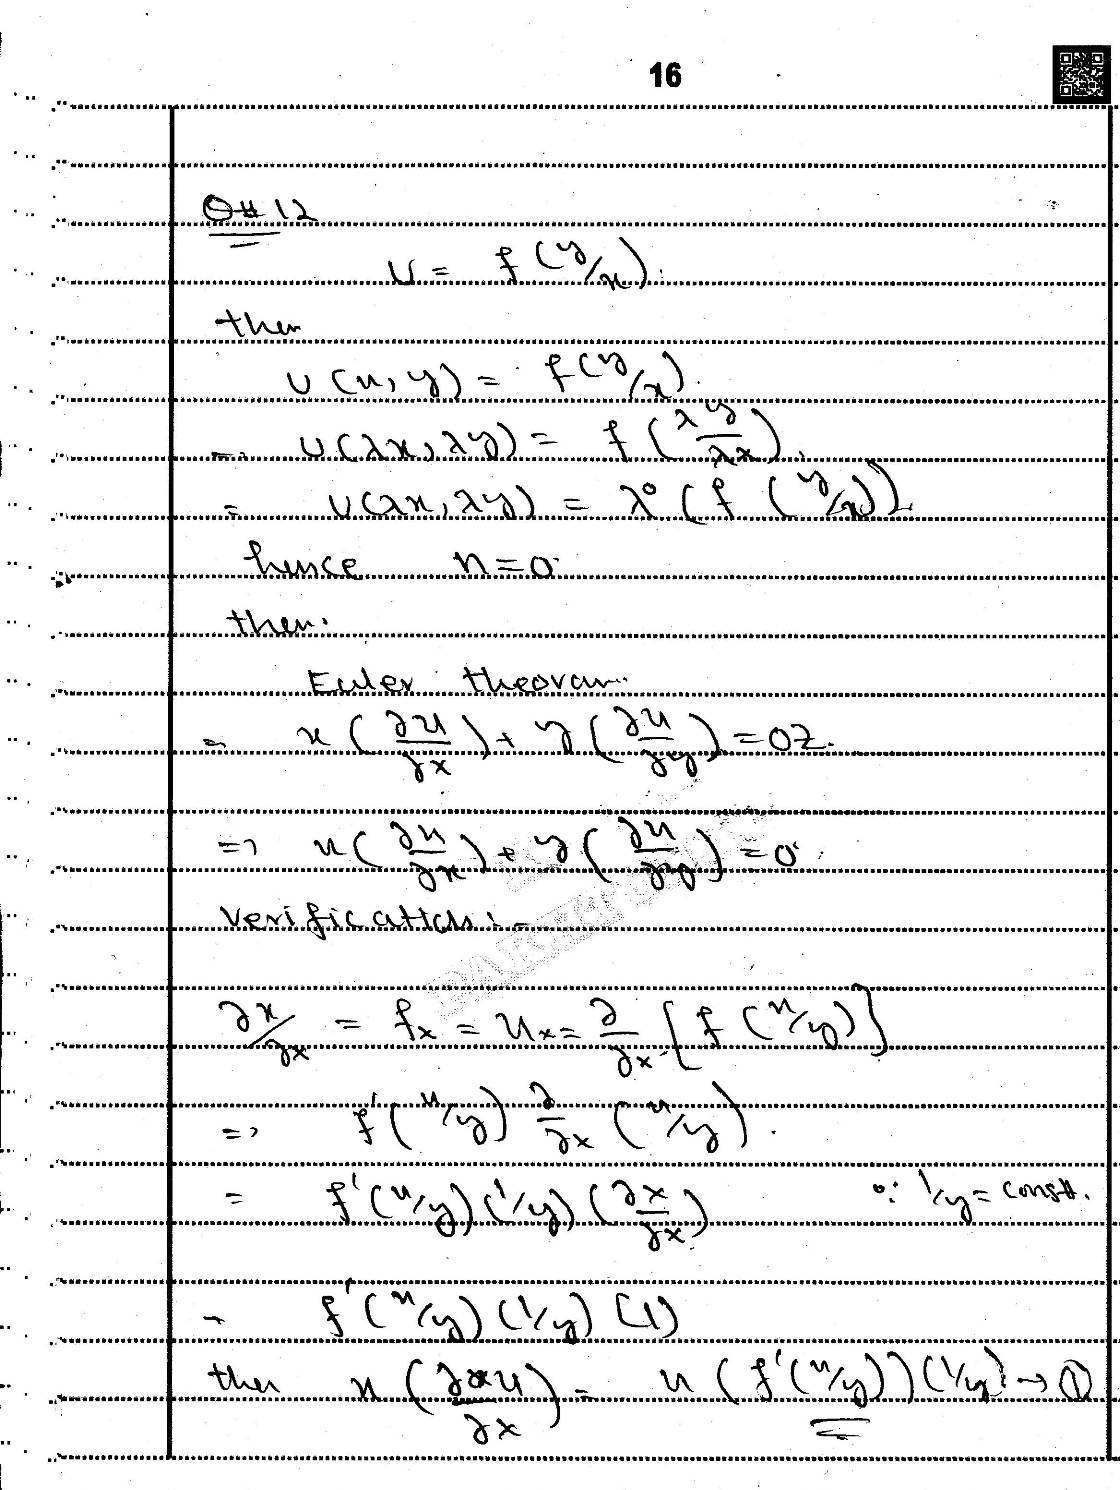 16
Q# 12
U = f(y/x).
then
U(x,y) = f(y/x).
=> U(λx,λy) = f(λy/λx).
= U(λx,λy) = λ⁰(f(y/x))
hence n=0.
then.
Euler theoram.
= x(∂u/∂x) + y(∂u/∂y) = 0Z.
=> x(∂u/∂x) + y(∂u/∂y) = 0.
Verification:-
∂x/∂x = fx = Ux = ∂/∂x [f(x/y)]
=> f'(x/y) ∂/∂x (x/y).
= f'(x/y)(1/y)(∂x/∂x) ∵ 1/y = const.
= f'(x/y)(1/y)(1)
then x(∂u/∂x) = x(f'(x/y))(1/y) → ①